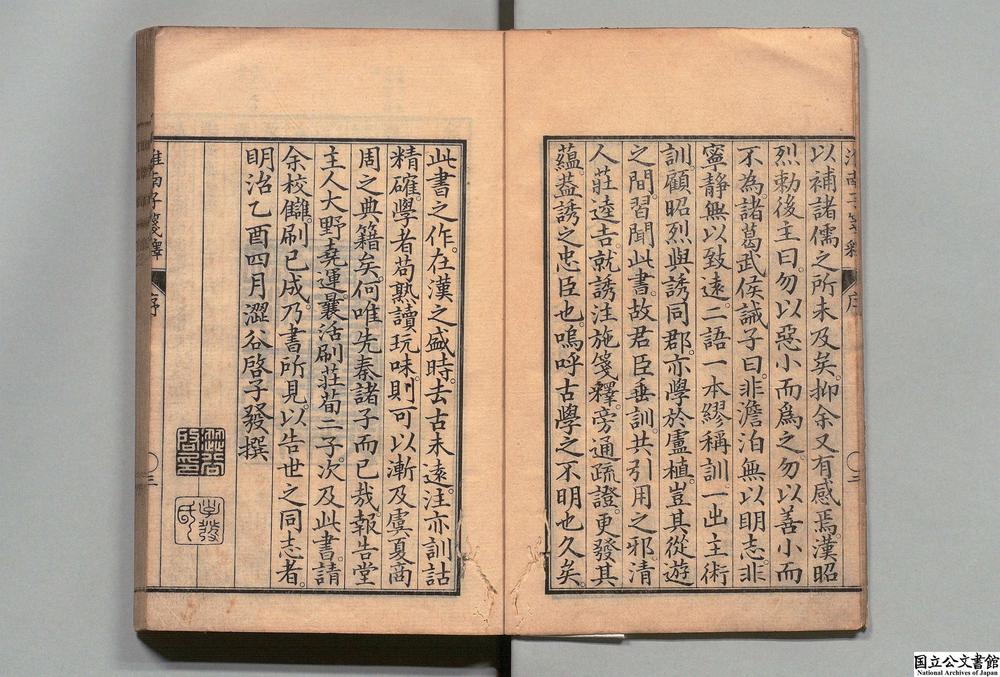 以補諸儒之所未及矣。抑余又有感焉。漢昭
烈勅後主曰。勿以惡小而爲之。勿以善小而
不為。諸葛武侯誡子曰。非澹泊無以明志。非
寧靜無以致遠。二語一本繆稱訓。一出主術
訓。顧昭烈與誘同郡。亦學於盧植。豈其從遊
之間。習聞此書。故君臣垂訓。共引用之邪。清
人莊逵吉。就誘注施箋釋。旁通疏證。更發其
蘊。葢誘之忠臣也。嗚呼古學之不明也久矣。
淮南子箋釋 序 〇三
此書之作。在漢之盛時。去古未遠。注亦訓詁
精確。學者苟熟讀玩味。則可以漸及虞夏商
周之典籍矣。何唯先秦諸子而已哉。報告堂
主人大野堯運。曩活刷莊荀二子。次及此書。請
余校讎。刷已成。乃書所見。以告世之同志者。
明治乙酉四月澀谷啓子發撰
子發氏
淮南子箋釋 序 〇三
国立公文書館
National Archives of Japan